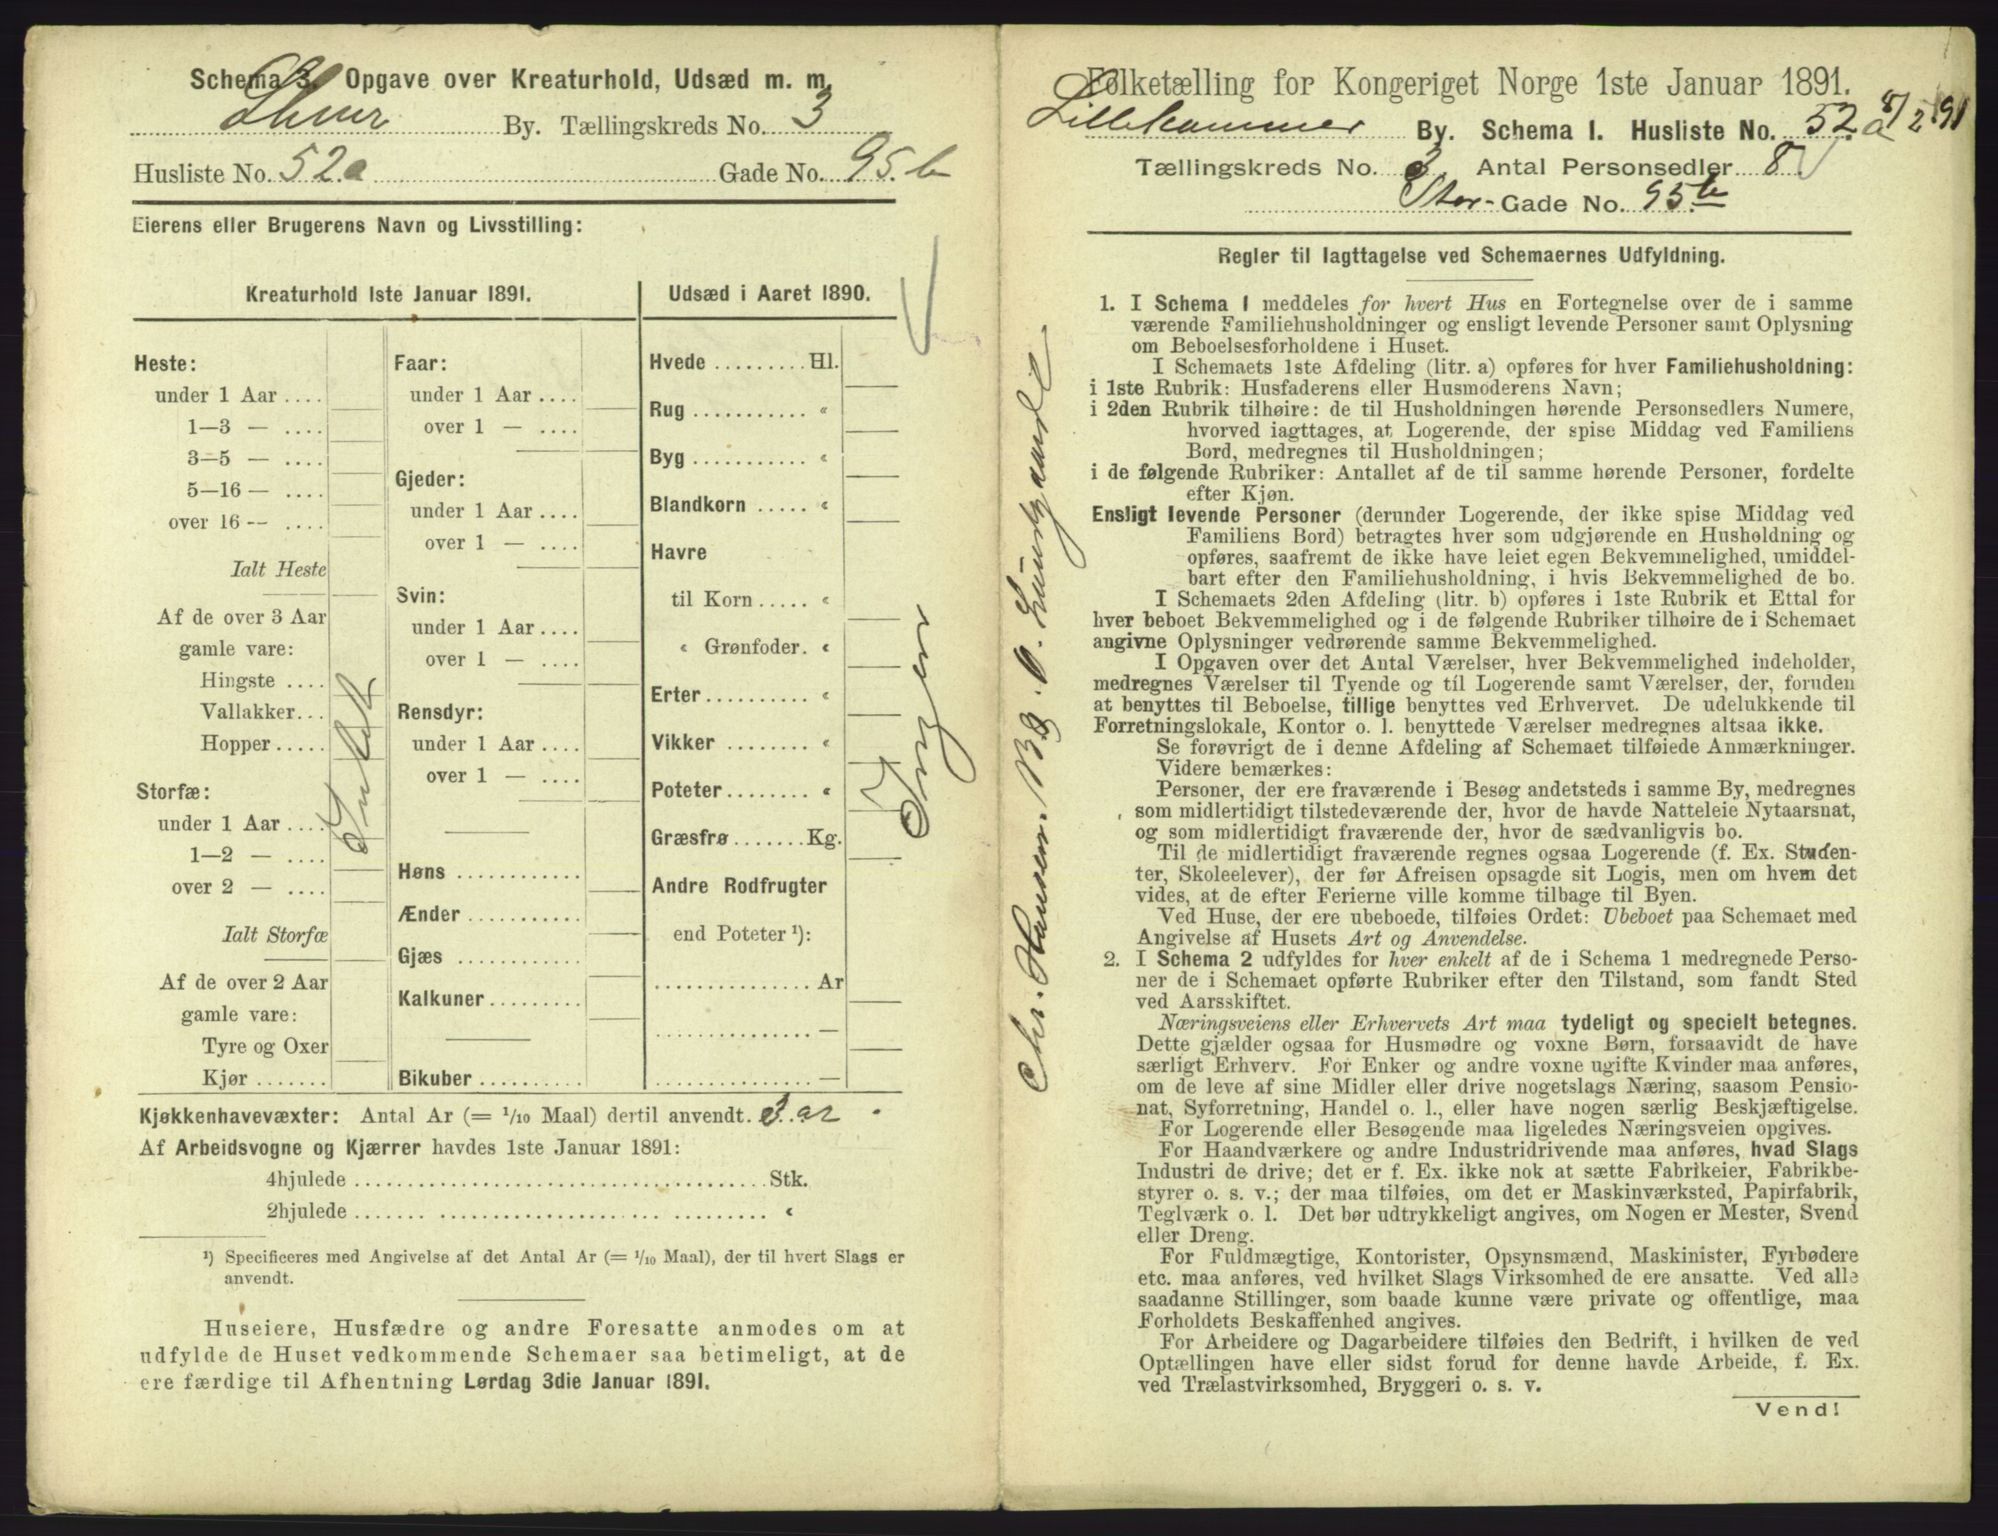 Schema 3. Opgave over Kreaturhold, Udsæd m. m.
Lhmr By. Tællingskreds No. 3
Husliste No. 52a Gade No. 95.b
Eierens eller Brugerens Navn og Livsstilling:
Kreaturhold 1ste Januar 1891.
Heste:
under 1 Aar ....
1—3 — ....
3—5 — ....
5—16 — ....
over 16 -- ....
Ialt Heste
Af de over 3 Aar
gamle vare:
Hingste ....
Vallakker...
Hopper.....
Storfæ:
under 1 Aar ....
1—2 — ....
over 2 — ....
Ialt Storfæ
Af de over 2 Aar
gamle vare:
Tyre og Oxer
Kjør .......
Intet
Faar:
under 1 Aar ....
over 1 — ....
Gjeder:
under 1 Aar ....
over 1 — ....
Svin:
under 1 Aar ....
over 1 — ....
Rensdyr:
under 1 Aar ....
over 1 — ....
Høns ...........
Ænder ..........
Gjæs ...........
Kalkuner ........
Bikuber .........
Udsæd i Aaret 1890.
Hvede ......... Hl.
Rug ........... «
Byg ........... «
Blandkorn ..... «
Havre
til Korn ..... «
« Grønfoder. «
Erter .......... «
Vikker ........ «
Poteter ........ «
Græsfrø ....... Kg.
Andre Rodfrugter
end Poteter ¹):
............... Ar
............... —
............... —
Ingen
Kjøkkenhavevæxter: Antal Ar (= 1/10 Maal) dertil anvendt. 3 ar
Af Arbeidsvogne og Kjærrer havdes 1ste Januar 1891:
4hjulede ..................................... Stk.
2hjulede ..................................... «
¹) Specificeres med Angivelse af det Antal Ar (= 1/10 Maal), der til hvert Slags er
anvendt.
Huseiere, Husfædre og andre Foresatte anmodes om at
udfylde de Huset vedkommende Schemaer saa betimeligt, at de
ere færdige til Afhentning Lørdag 3die Januar 1891.
Chr. Hansen.
Folketælling for Kongeriget Norge 1ste Januar 1891.
Lillehammer By. Schema 1. Husliste No. 52.a 8/2 91
Tællingskreds No. 3 Antal Personsedler 8
Stor-Gade No. 95.b
Regler til Iagttagelse ved Schemaernes Udfyldning.
1. I Schema 1 meddeles for hvert Hus en Fortegnelse over de i samme
værende Familiehusholdninger og ensligt levende Personer samt Oplysning
om Beboelsesforholdene i Huset.
I Schemaets 1ste Afdeling (litr. a) opføres for hver Familiehusholdning:
i 1ste Rubrik: Husfaderens eller Husmoderens Navn;
i 2den Rubrik tilhøire: de til Husholdningen hørende Personsedlers Numere,
hvorved iagttages, at Logerende, der spise Middag ved Familiens
Bord, medregnes til Husholdningen;
i de følgende Rubriker: Antallet af de til samme hørende Personer, fordelte
efter Kjøn.
Ensligt levende Personer (derunder Logerende, der ikke spise Middag ved
Familiens Bord) betragtes hver som udgjørende en Husholdning og
opføres, saafremt de ikke have leiet egen Bekvemmelighed, umiddel-
bart efter den Familiehusholdning, i hvis Bekvemmelighed de bo.
I Schemaets 2den Afdeling (litr. b) opføres i 1ste Rubrik et Ettal for
hver beboet Bekvemmelighed og i de følgende Rubriker tilhøire de i Schemaet
angivne Oplysninger vedrørende samme Bekvemmelighed.
I Opgaven over det Antal Værelser, hver Bekvemmelighed indeholder,
medregnes Værelser til Tyende og til Logerende samt Værelser, der, foruden
at benyttes til Beboelse, tillige benyttes ved Erhvervet. De udelukkende til
Forretningslokale, Kontor o. l. benyttede Værelser medregnes altsaa ikke.
Se forøvrigt de i denne Afdeling af Schemaet tilføiede Anmærkninger.
Videre bemærkes:
Personer, der ere fraværende i Besøg andetsteds i samme By, medregnes
som midlertidigt tilstedeværende der, hvor de havde Natteleie Nytaarsnat,
og som midlertidigt fraværende der, hvor de sædvanligvis bo.
Til de midlertidigt fraværende regnes ogsaa Logerende (f. Ex. Studen-
ter, Skoleelever), der før Afreisen opsagde sit Logis, men om hvem det
vides, at de efter Ferierne ville komme tilbage til Byen.
Ved Huse, der ere ubeboede, tilføies Ordet: Ubeboet paa Schemaet med
Angivelse af Husets Art og Anvendelse.
2. I Schema 2 udfyldes for hver enkelt af de i Schema 1 medregnede Perso-
ner de i Schemaet opførte Rubriker efter den Tilstand, som fandt Sted
ved Aarsskiftet.
Næringsveiens eller Erhvervets Art maa tydeligt og specielt betegnes.
Dette gjælder ogsaa for Husmødre og voxne Børn, forsaavidt de have
særligt Erhverv. For Enker og andre voxne ugifte Kvinder maa anføres,
om de leve af sine Midler eller drive nogetslags Næring, saasom Pensio-
nat, Syforretning, Handel o. l., eller have nogen særlig Beskjæftigelse.
For Logerende eller Besøgende maa ligeledes Næringsveien opgives.
For Haandværkere og andre Industridrivende maa anføres, hvad Slags
Industri de drive; det er f. Ex. ikke nok at sætte Fabrikeier, Fabrikbe-
styrer o. s. v.; der maa tilføies, om det er Maskinværksted, Papirfabrik,
Teglværk o. l. Det bør udtrykkeligt angives, om Nogen er Mester, Svend
eller Dreng.
For Fuldmægtige, Kontorister, Opsynsmænd, Maskinister, Fyrbødere
etc. maa anføres, ved hvilket Slags Virksomhed de ere ansatte. Ved alle
saadanne Stillinger, som baade kunne være private og offentlige, maa
Forholdets Beskaffenhed angives.
For Arbeidere og Dagarbeidere tilføies den Bedrift, i hvilken de ved
Optællingen have eller sidst forud for denne havde Arbeide, f. Ex.
ved Trælastvirksomhed, Bryggeri o. s. v.
Vend!